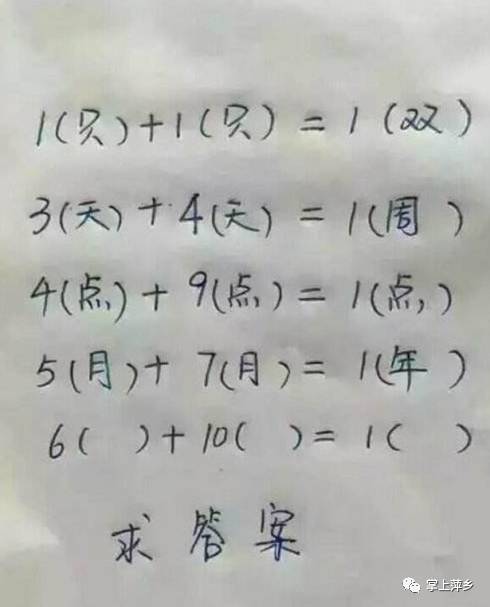 1(只)+1(只)=1(双)
3(天)+4(天)=1(周)
4(点)+9(点)=1(点)
5(月)+7(月)=1(年)
6( )+10( )=1( )
求答案
掌上萍乡